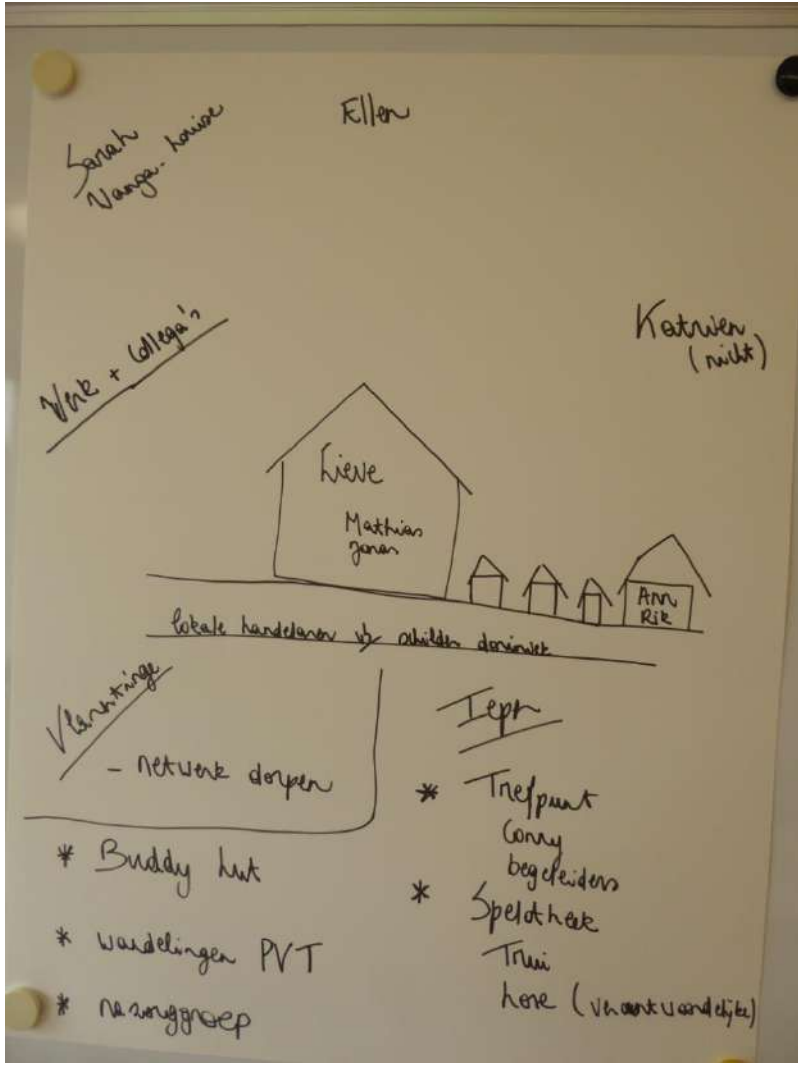 Sarah
Ellen
Louise
Katrien
(nicht)
Werk + Collega's
Lieve
Mathias
Jonas
Ann
Rik
lokale handelaren
Vlamertinge
- netwerk dorpen
* Buddy hut
* wandelingen PVT
* nazorggroep
Ieper
* Trefpunt
Conny
begeleiders
* Spelotheek
Trui
Lore (verantwoordelijke)